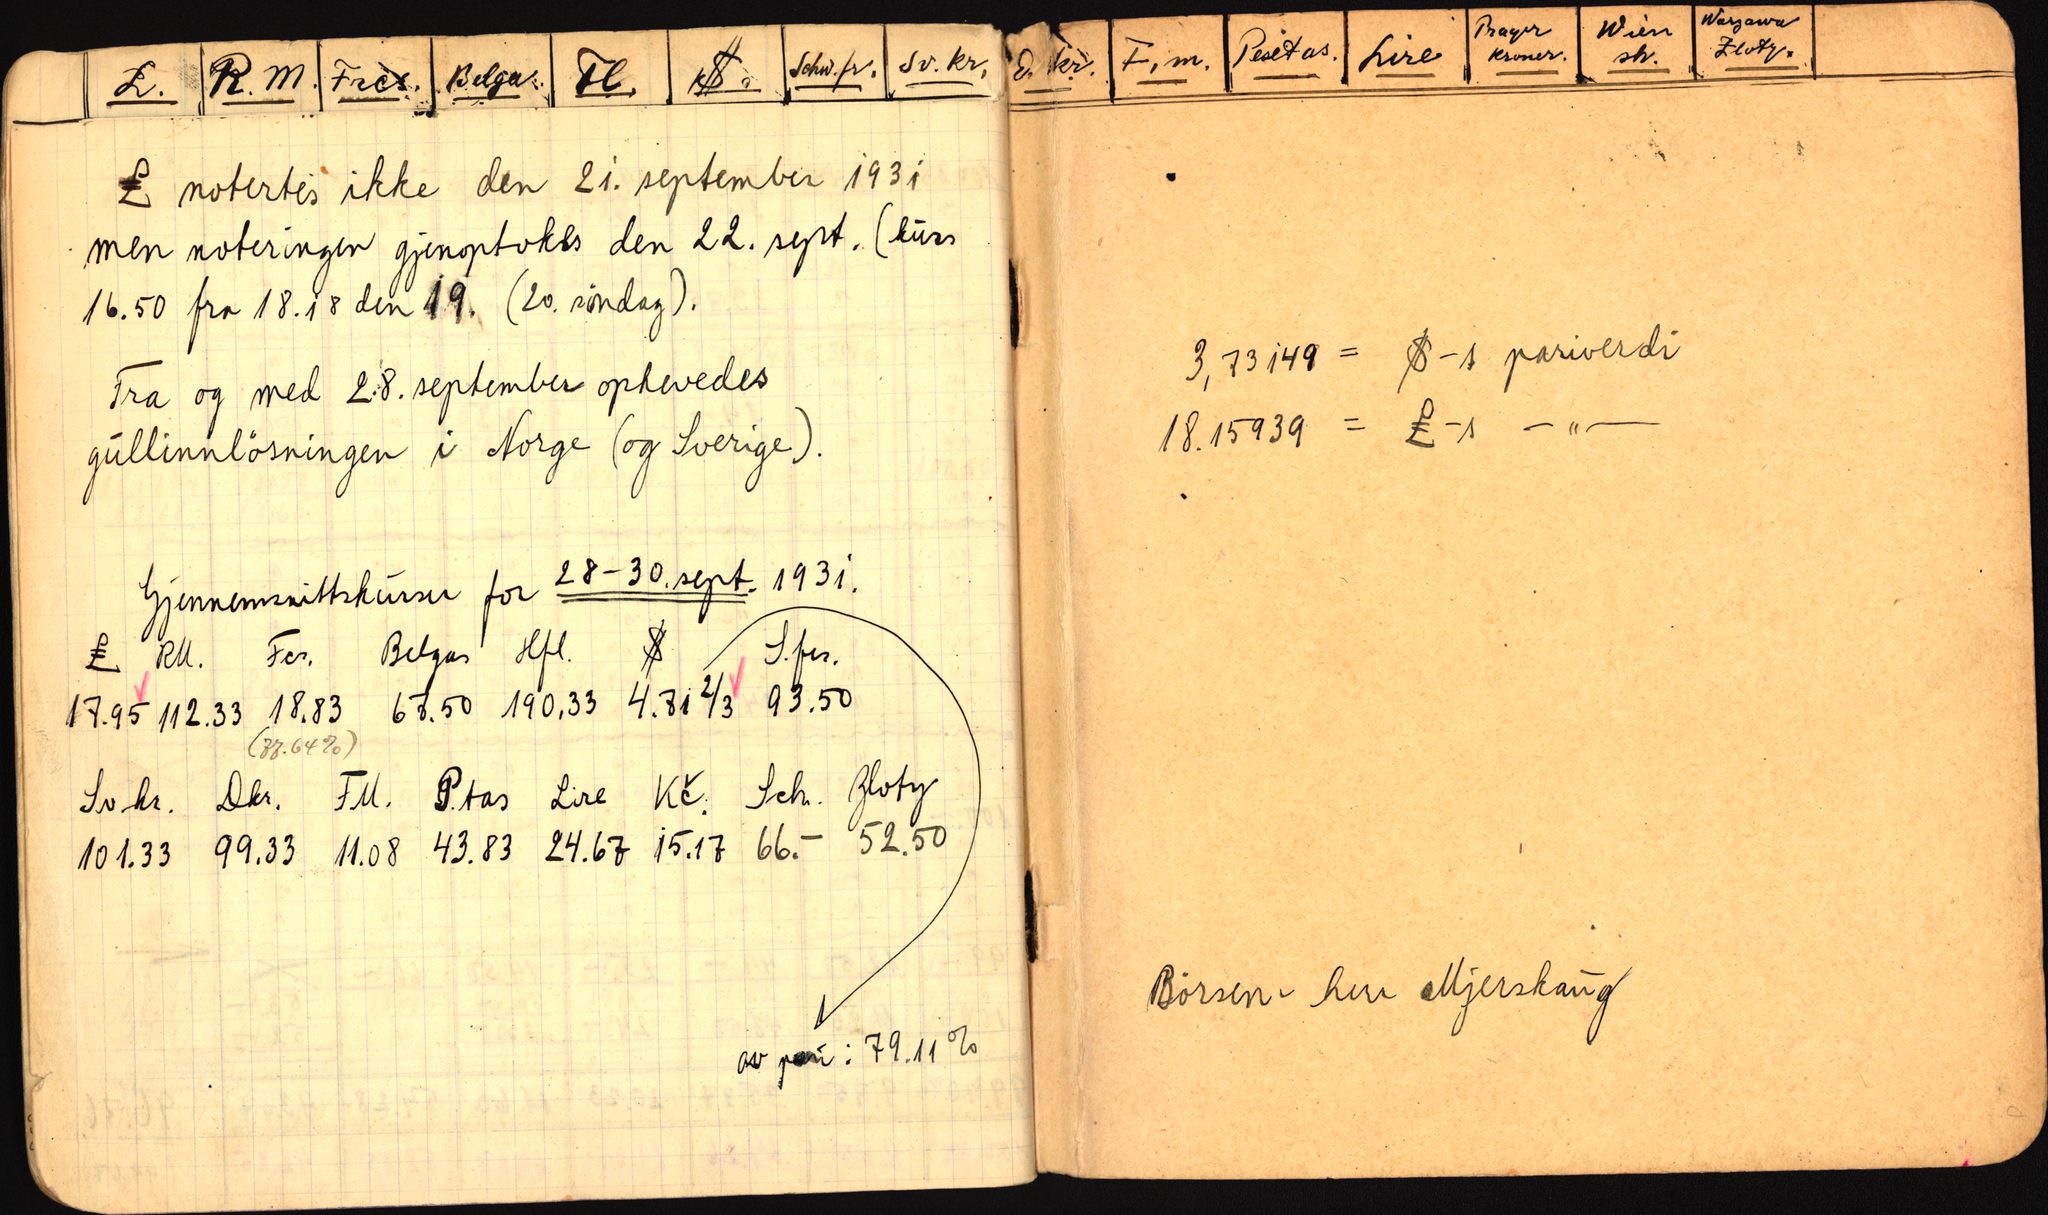 £. R.M. Frcs. Belga. Fl. $ Schw.fr. Sv. kr. D. kr. F.m. Pesetas. Lire Prager kroner. Wien sh. Warzawa Zloty.
£ notertes ikke den 21. september 1931
men noteringen gjenoptokes den 22. sept. (kurs
16.50 fra 18.18 den 19. (20. søndag).
Fra og med 28. september ophevedes
gullinnløsningen i Norge (og Sverige).
Gjennemsnittskurser for 28-30. sept. 1931.
£ RM. Fcr. Belgas Hfl. $ S.frc.
17.95 112.33 18.83 67.50 190.33 4.71 2/3 93.50
(77.64%)
Sv kr. Dkr. FM. P.tas Lire Kč. Sch. Zloty
101.33 99.33 11.08 43.83 24.67 15.17 66.- 52.50
av pari: 79.11%
3,73149 = $-s pariverdi
18.15939 = £-s -"-
Børsen - herr Mjerskaug